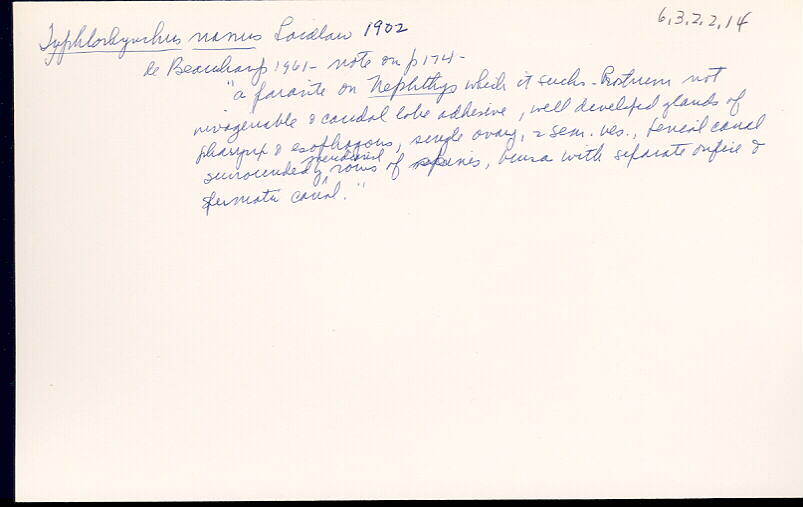 6,3,2,2,14
Typhlorhynchus nanus Laidlaw 1902
de Beauchamp 1961 - note on p 174 -
"a parasite on Nephthys which it sucks - Rostrum not
invaginable & caudal lobe adhesive, well developed glands of
pharynx & esophagous, single ovary, 2 sem. ves., penial canal
surrounded by meridional rows of spines, bursa with separate orifice &
spermatic canal."